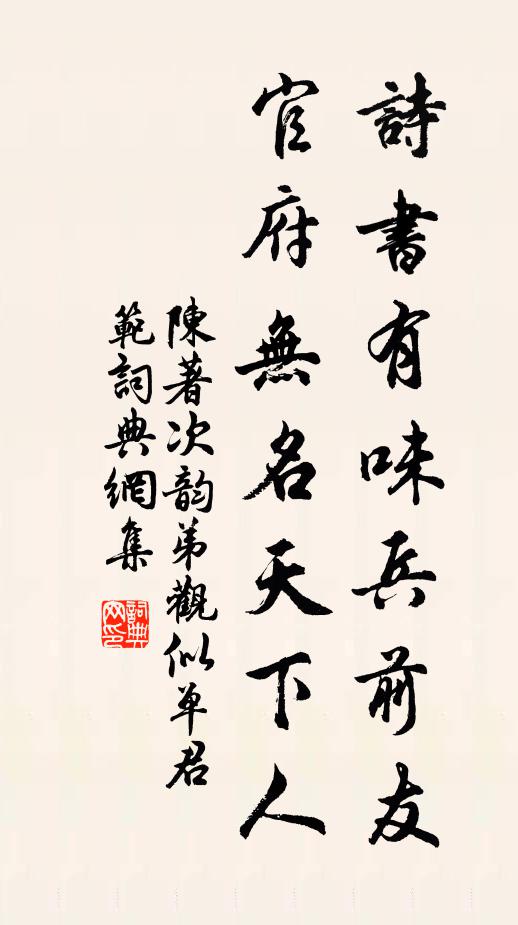 詩書有味兵前友
官府無名天下人
陳著次韵弟觀似單君
範詞典網集
詞典网印